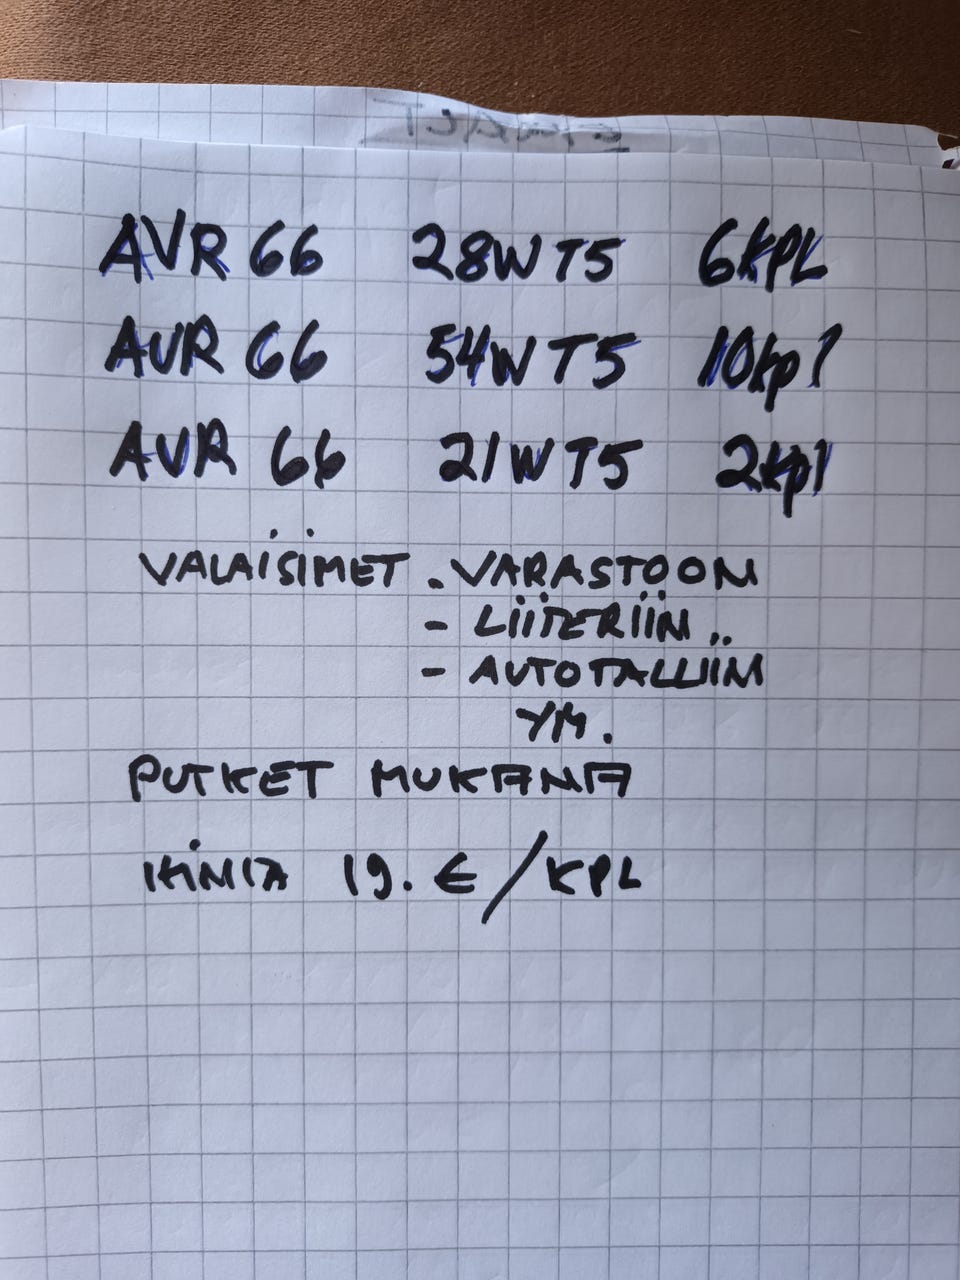 AVR 66 28W T5 6KPL
AVR 66 54W T5 10kpl
AVR 66 21W T5 2kpl
VALAISIMET - VARASTOON
- LIITERIIN
- AUTOTALLIIN
YM.
PUTKET MUKANA
HINTA 19. € / KPL